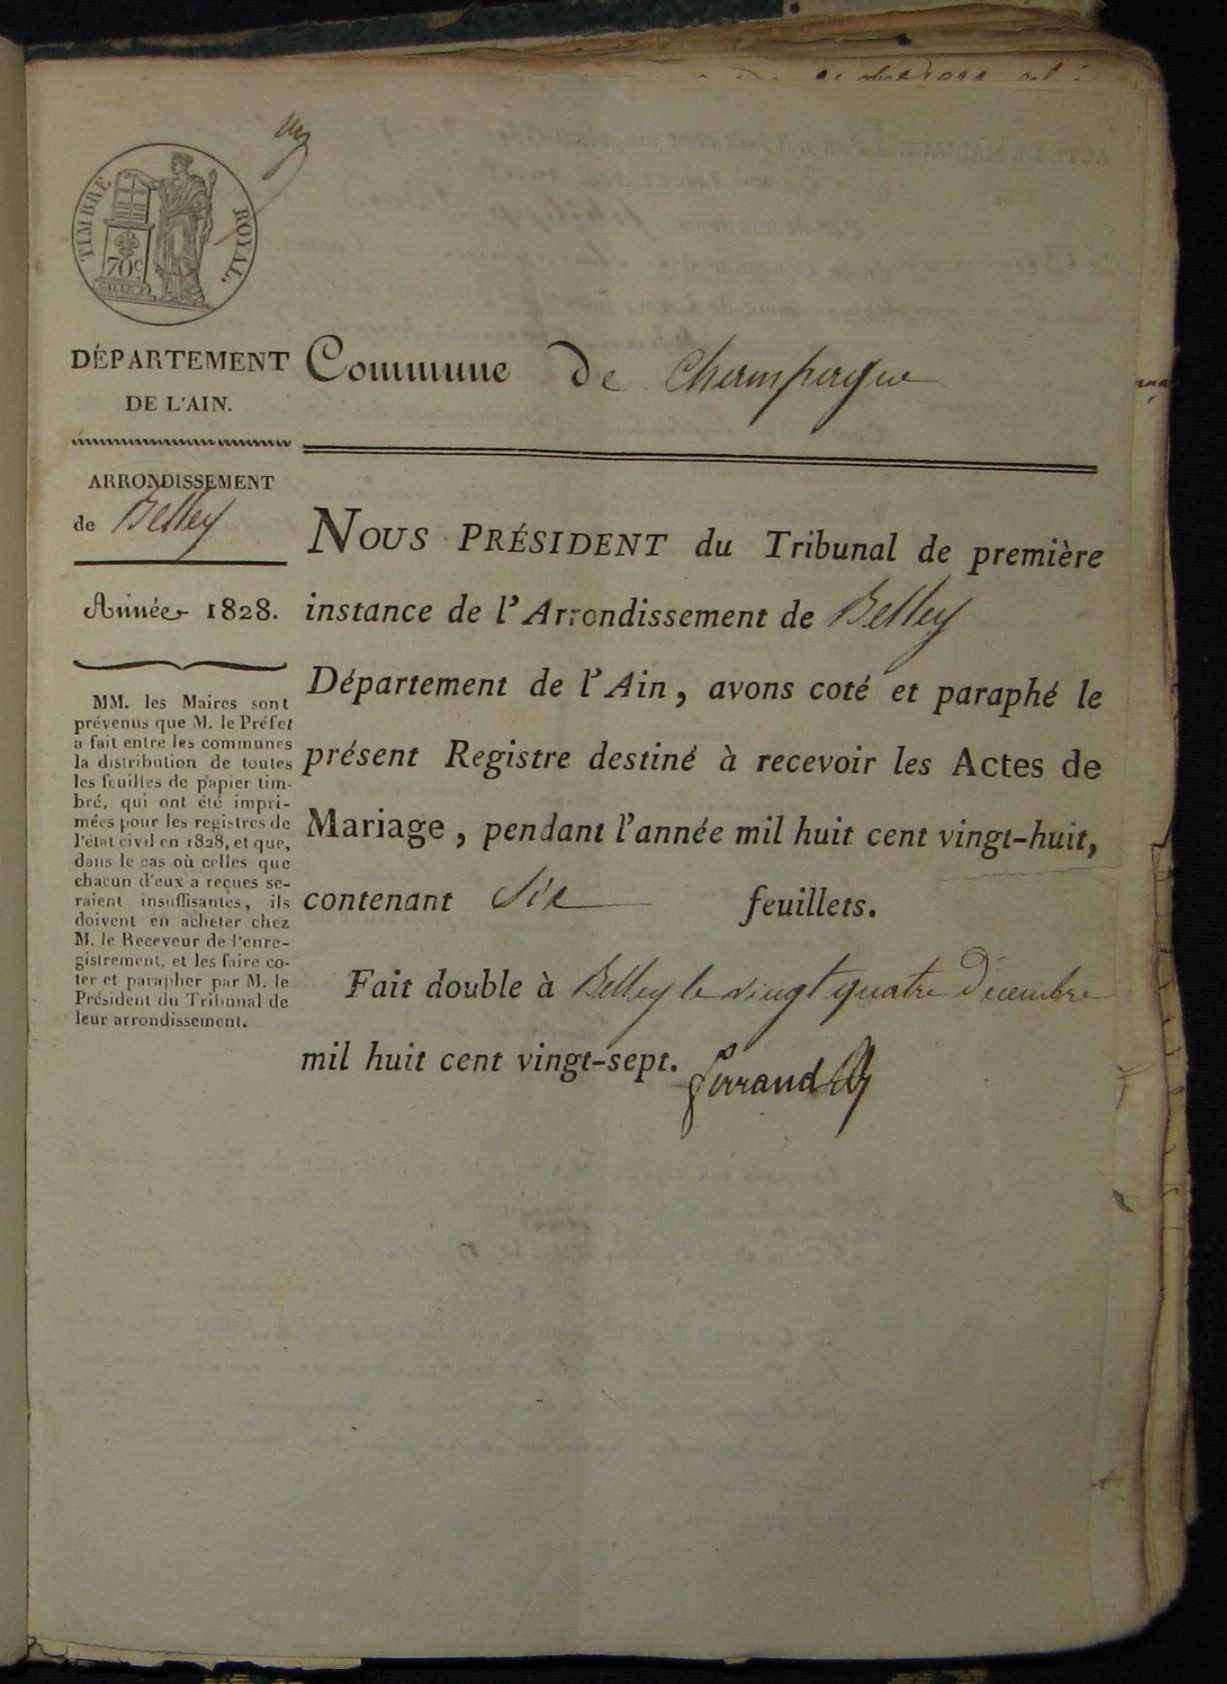 TIMBRE ROYAL.
70c.
DÉPARTEMENT
DE L'AIN.
ARRONDISSEMENT
de Belley
Année 1828.
MM. les Maires sont
prévenus que M. le Préfet
a fait entre les communes
la distribution de toutes
les feuilles de papier tim-
bré, qui ont été impri-
mées pour les registres de
l'état civil en 1828, et que,
dans le cas où celles que
chacun d'eux a reçues se-
raient insuffisantes, ils
doivent en acheter chez
M. le Receveur de l'enre-
gistrement, et les faire co-
ter et parapher par M. le
Président du Tribunal de
leur arrondissement.
Commune de Champagne
NOUS PRÉSIDENT du Tribunal de première
instance de l'Arrondissement de Belley
Département de l'Ain, avons coté et paraphé le
présent Registre destiné à recevoir les Actes de
Mariage, pendant l'année mil huit cent vingt-huit,
contenant six feuillets.
Fait double à Belley le vingt quatre Décembre
mil huit cent vingt-sept.